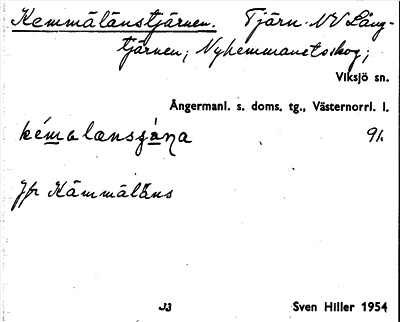 Kemmälänstjärnen. Tjärn NV Lång-
tjärnen; Nyhemmanetsskog;
Viksjö sn.
Ångermanl. s. doms. tg., Västernorrl. l.
kémalanszána 91.
Jfr Kämmäläns
J3 Sven Hiller 1954